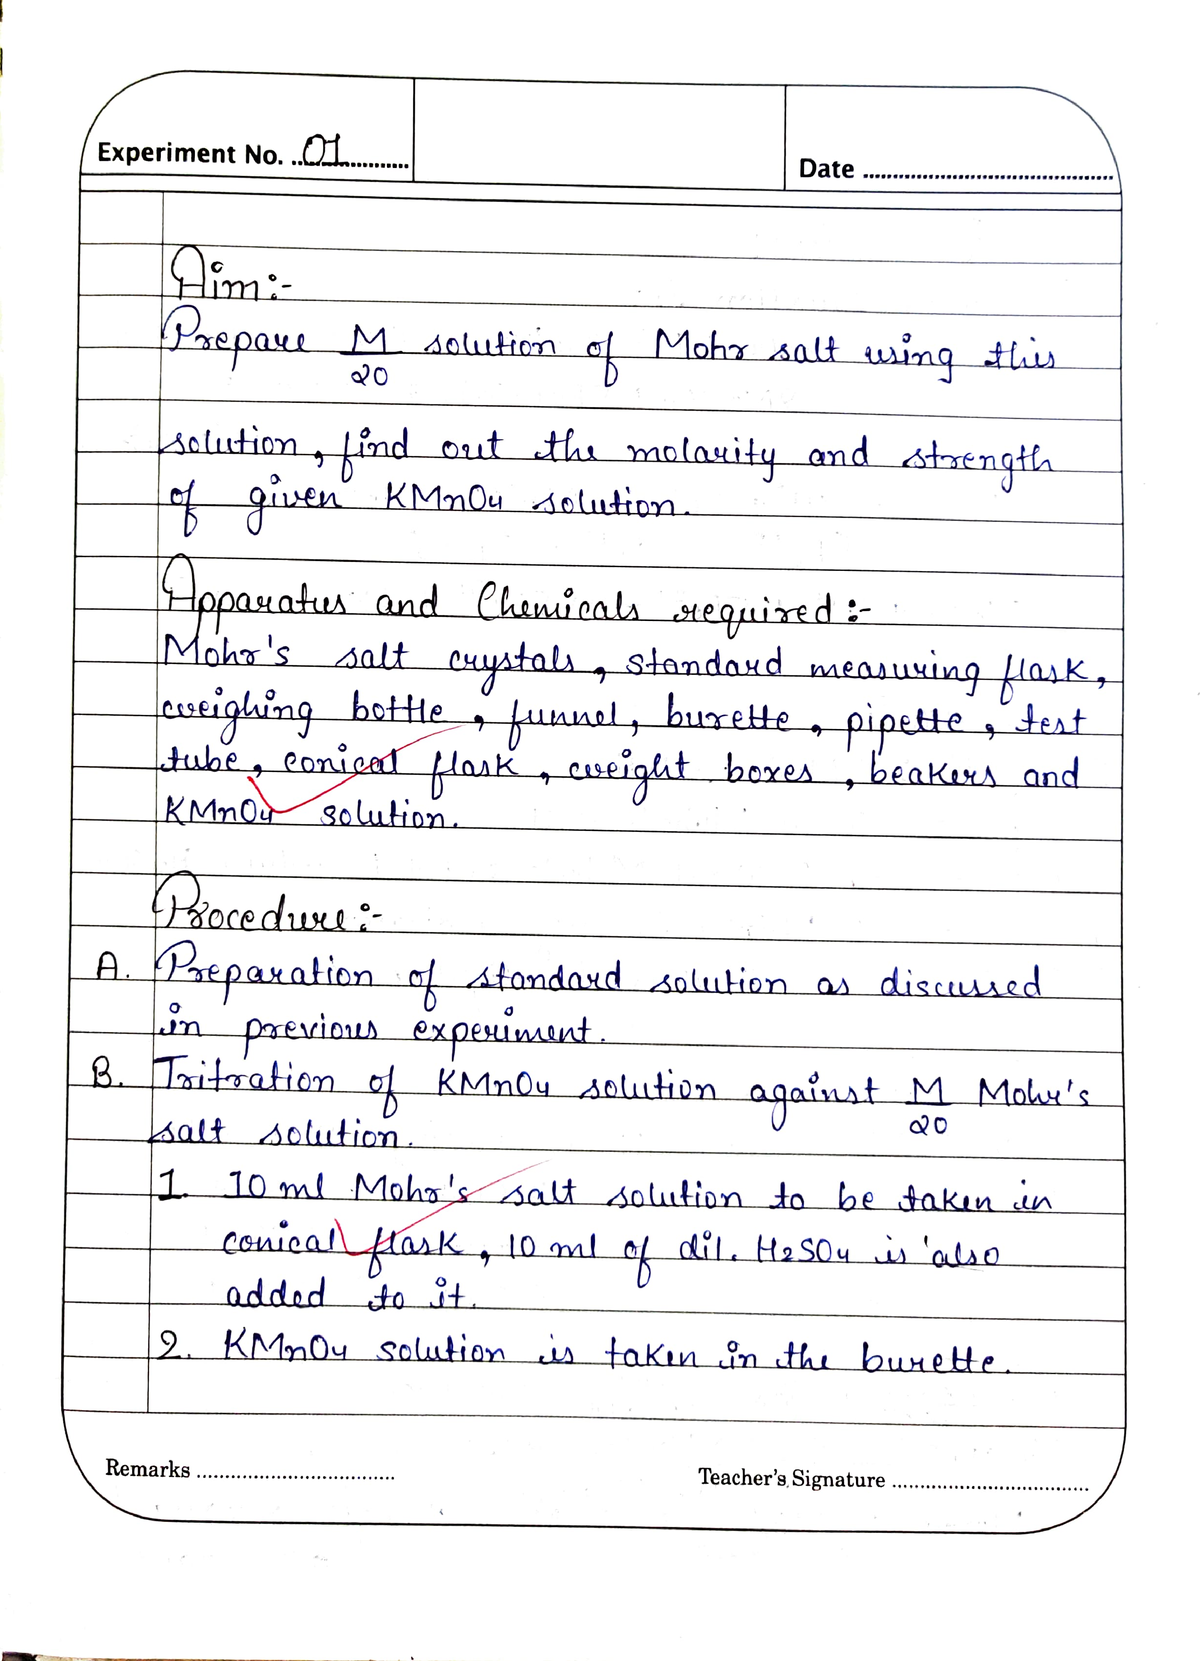 Experiment No. 01
Date
Aim:-
Prepare M/20 solution of Mohr salt using this
solution, find out the molarity and strength
of given KMnO4 solution.
Apparatus and Chemicals required :-
Mohr's salt crystals, standard measuring flask,
weighing bottle, funnel, burette, pipette, test
tube, conical flask, weight boxes, beakers and
KMnO4 solution.
Procedure:-
A. Preparation of standard solution as discussed
in previous experiment.
B. Tritration of KMnO4 solution against M/20 Mohr's
salt solution.
1. 10 ml Mohr's salt solution to be taken in
conical flask, 10 ml of dil. H2SO4 is also
added to it.
2. KMnO4 solution is taken in the burette.
Remarks
Teacher's Signature